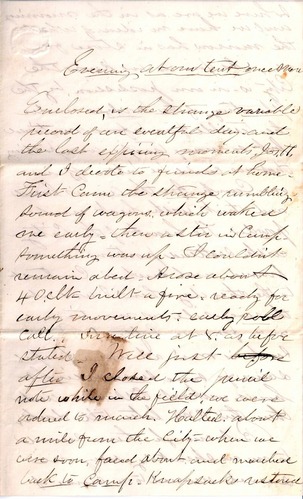 Evening, at our tent once more
Enclosed, is the strange variable
record of an eventful day, and
the last expiring moments,
and I devote to friends at home.
First came the strange rumbling
sound of wagons, which waked
me early - then a stir in Camp.
something was up. I couldn't
remain abed. Arose about
4 Oclk built a fire. ready for
early movements. early roll
call. Inspection at 8. as before
stated. Well just before
after I closed the pencil
note while in the field, we were
ordered to march. Halted about
a mile from the City when we
were soon, faced about, and marched
back to Camp. Knapsacks restored